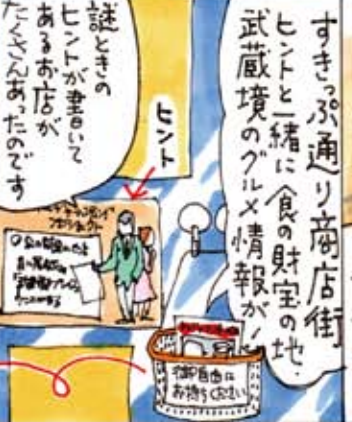 すきっぷ通り商店街
ヒントと一緒に食の財宝の地、
武蔵境のグルメ情報が！
謎ときの
ヒントが書いて
あるお店が
たくさんあったのです
ヒント
御自由に
お持ちください